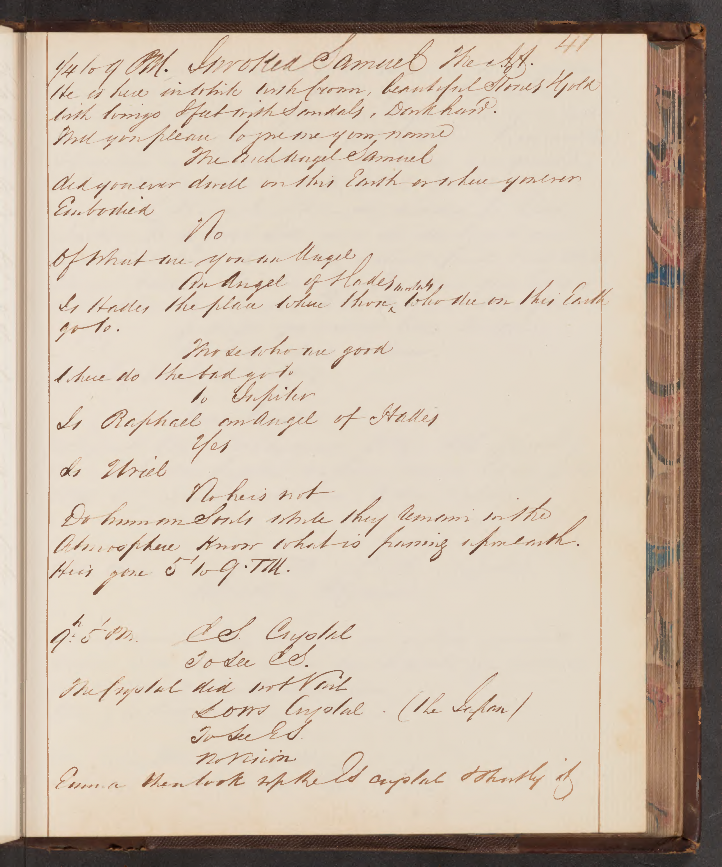 41
1/4 to 9 PM. Invoked Samuel The
He is here in white with Crown, beautiful Stones & gold
with wings & feet with Sandals, Dark hair.
Will you please to give me your name
The Archangel Samuel
did you ever dwell on this Earth or were you ever
Embodied
No
Of What are you an Angel
An Angel of Hades
Is Hades the place where those who die on this Earth
go to.
Those who are good
Where do the bad go to
to Jupiter
Is Raphael an Angel of Hades
Yes
Is Uriel
No he is not
Do human Souls while they remain in the
Atmosphere Know what is passing upon earth.
He is gone 5' to 9. PM.
9h 5' PM. C S. Crystal
To See CS.
The Crystal did not
Crystal. (the
To See
No Vision
Emma then took up the crystal & shortly it